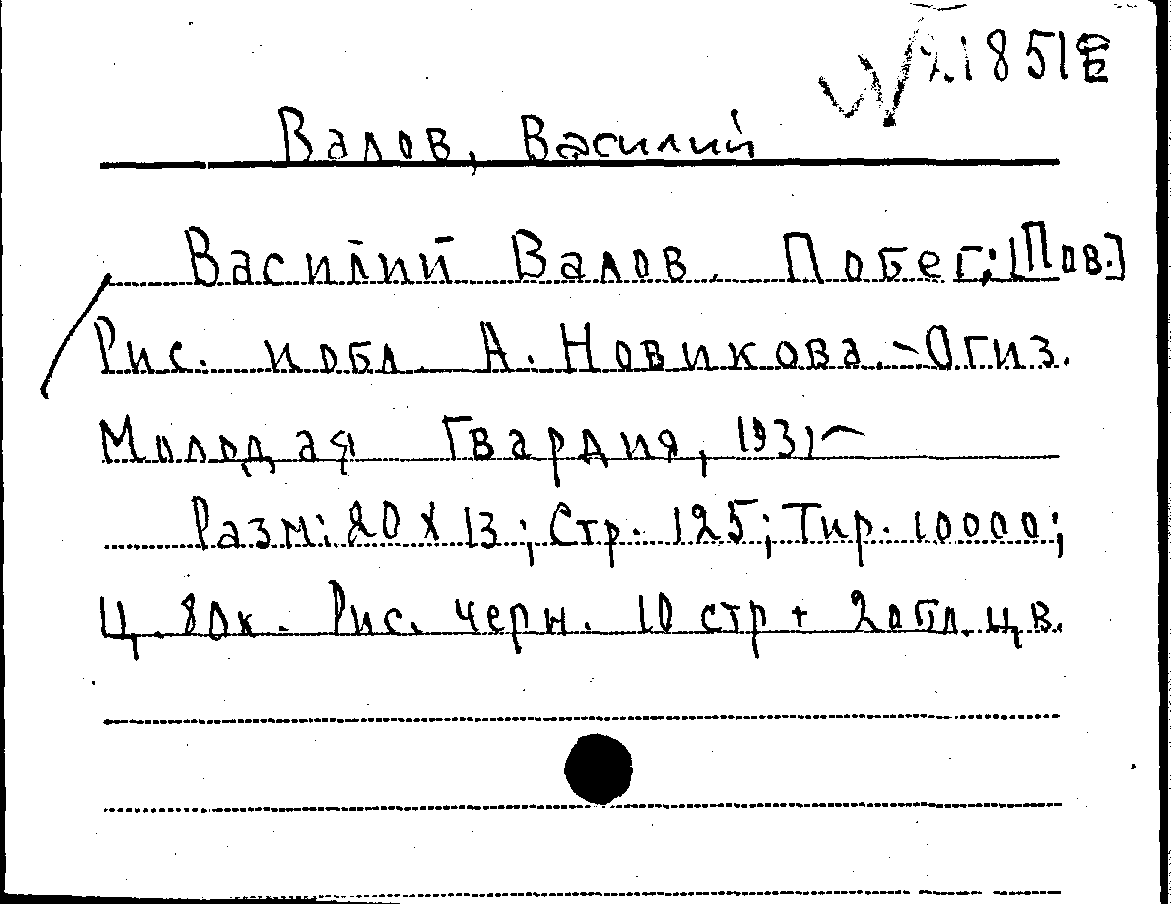 21851Е
Валов, Василий
Василий Валов. Побег: [Пов.]
Рис. и обл. А. Новикова. - Огиз.
Молодая Гвардия, 1931 -
Разм: 20 х 13; Стр. 125; Тир. 10000;
Ц. 80к. Рис. черн. 10 стр + 2 обл. цв.